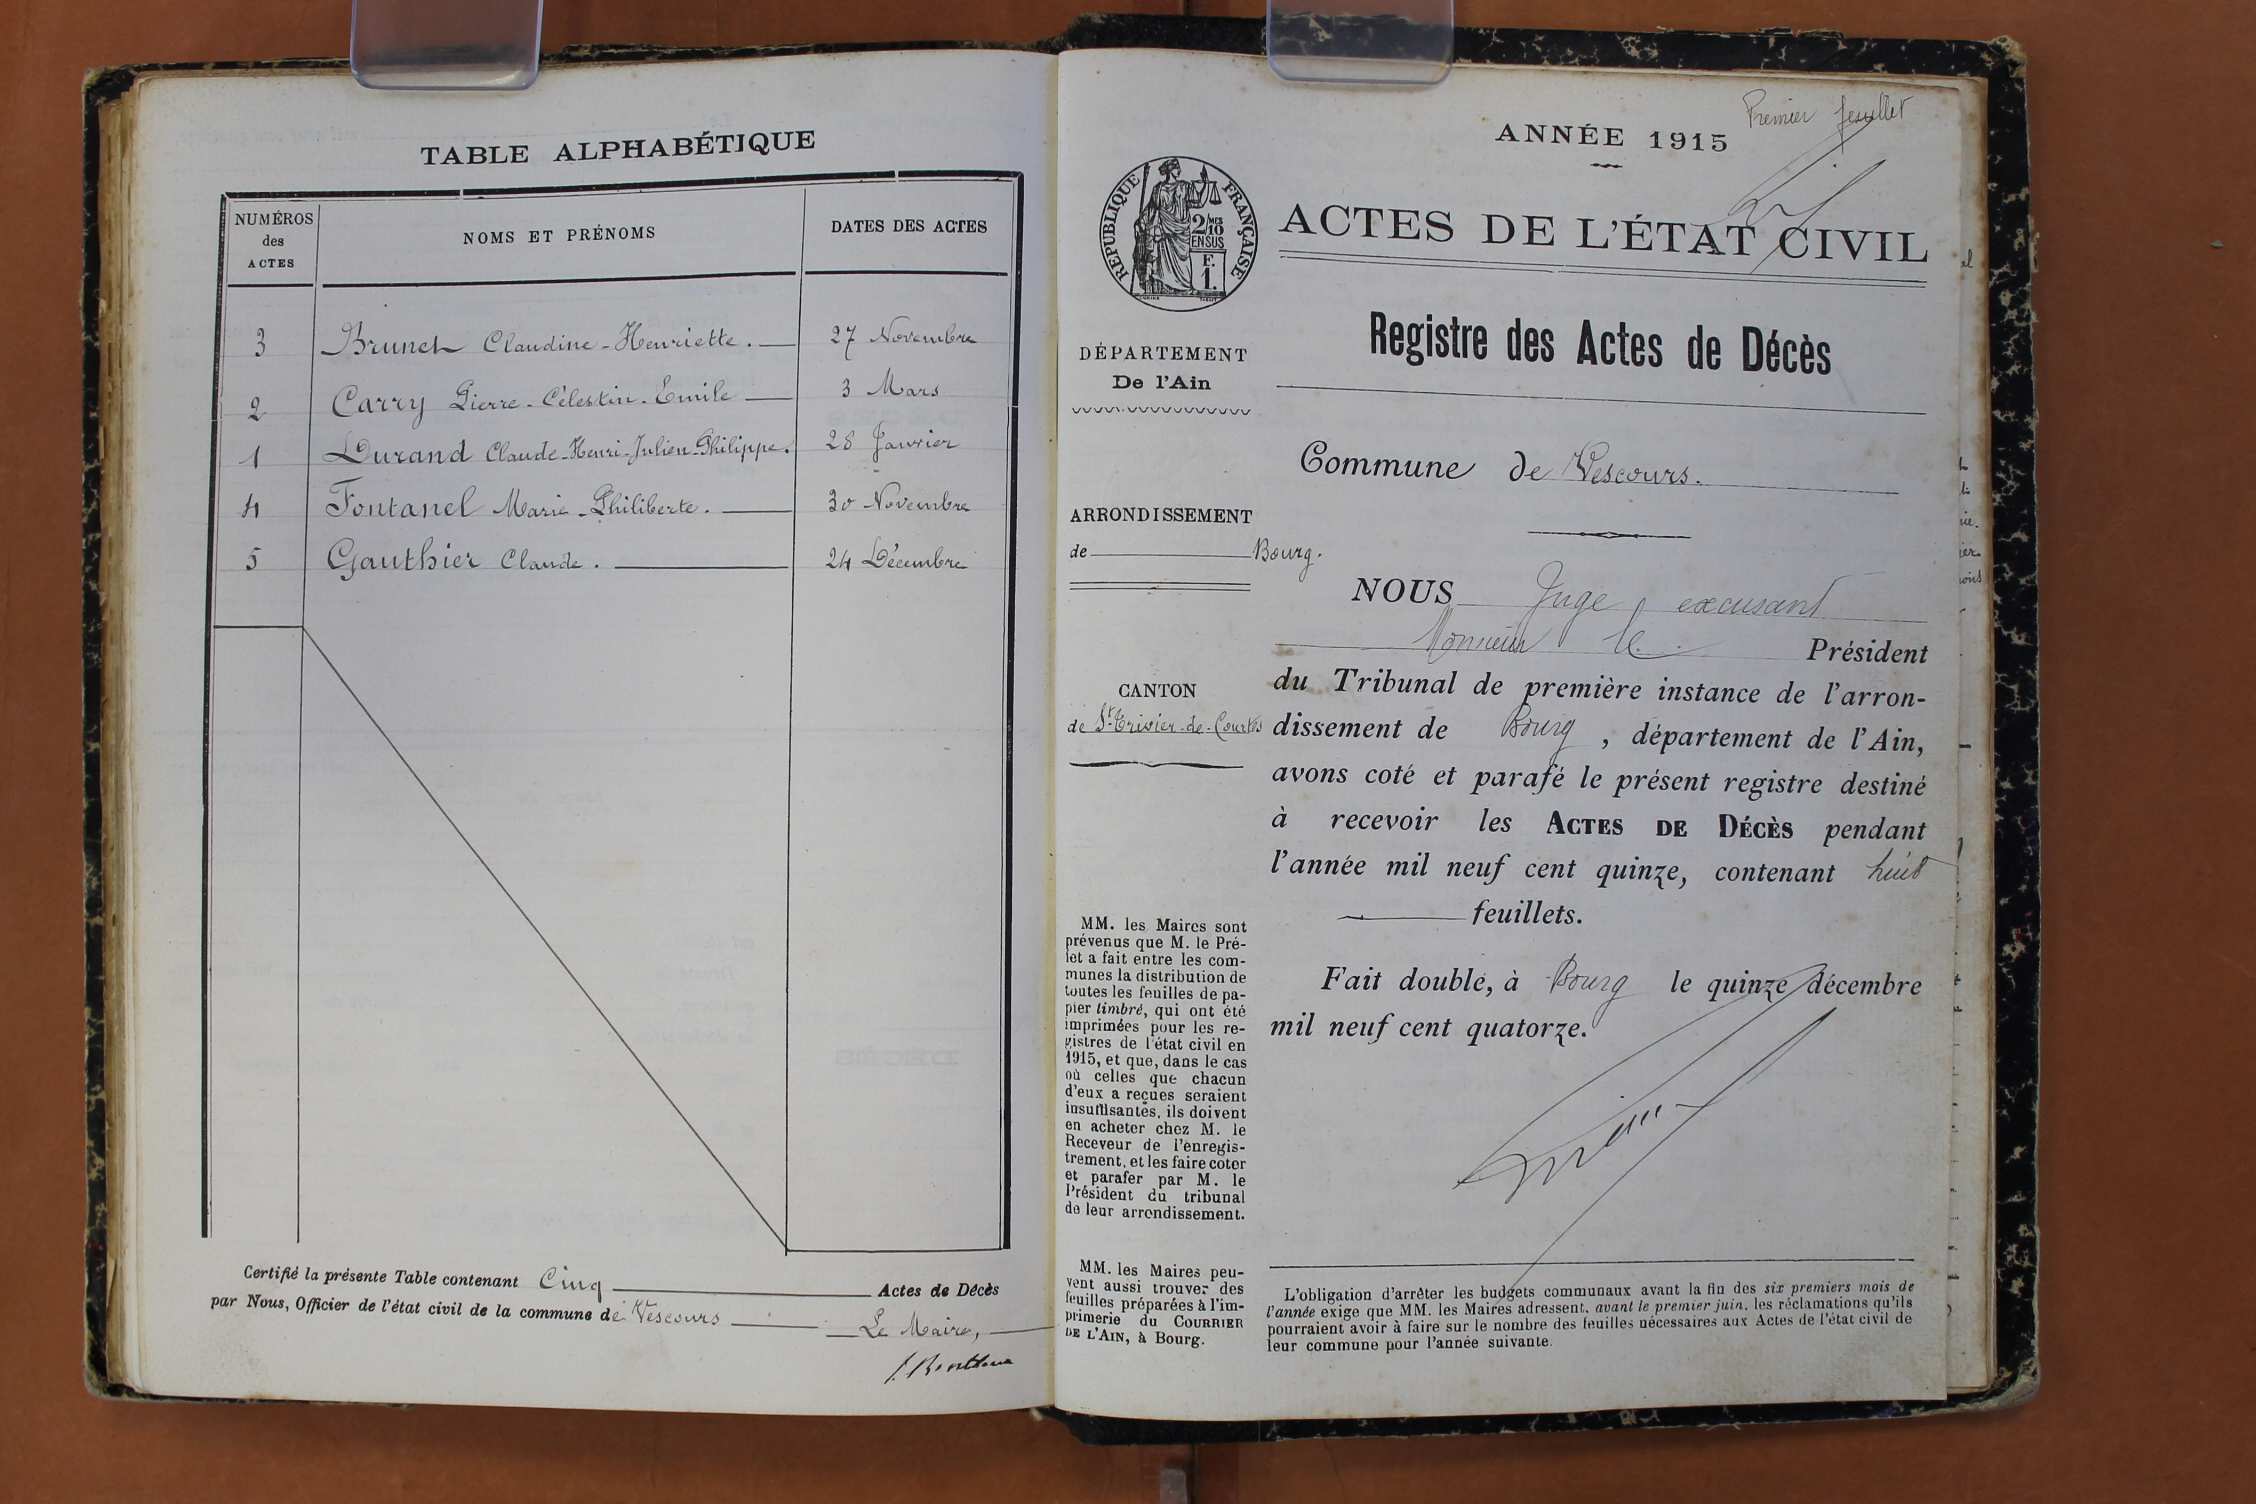 TABLE ALPHABÉTIQUE
NUMÉROS
des
ACTES
NOMS ET PRÉNOMS
DATES DES ACTES
3 Brunet Claudine-Henriette. 27 Novembre
2 Carry Pierre-Célestin-Emile 3 Mars
1 Durand Claude-Henri-Julien-Philippe. 28 Janvier
4 Fontanel Marie-Philiberte. 30 Novembre
5 Gauthier Claude. 24 Décembre
Certifié la présente Table contenant Cinq Actes de Décès
par Nous, Officier de l'état civil de la commune de Vescours
Le Maire,
Premier feuillet
ANNÉE 1915
ACTES DE L'ÉTAT CIVIL
REPUBLIQUE FRANÇAISE
2/10 MES
EN SUS
F.
1.
Registre des Actes de Décès
DÉPARTEMENT
De l'Ain
Commune de Vescours.
ARRONDISSEMENT
de Bourg.
CANTON
de St-Trivier-de-Courtes
NOUS Juge excusant
Monsieur le Président
du Tribunal de première instance de l'arron-
dissement de Bourg, département de l'Ain,
avons coté et parafé le présent registre destiné
à recevoir les ACTES DE DÉCÈS pendant
l'année mil neuf cent quinze, contenant huit
feuillets.
Fait double, à Bourg le quinze décembre
mil neuf cent quatorze.
MM. les Maires sont
prévenus que M. le Pré-
fet a fait entre les com-
munes la distribution de
toutes les feuilles de pa-
pier timbré, qui ont été
imprimées pour les re-
gistres de l'état civil en
1915, et que, dans le cas
où celles que chacun
d'eux a reçues seraient
insuffisantes, ils doivent
en acheter chez M. le
Receveur de l'enregis-
trement, et les faire coter
et parafer par M. le
Président du tribunal
de leur arrondissement.
MM. les Maires peu-
vent aussi trouver des
feuilles préparées à l'im-
primerie du COURRIER
DE L'AIN, à Bourg.
L'obligation d'arrêter les budgets communaux avant la fin des six premiers mois de
l'année exige que MM. les Maires adressent, avant le premier juin, les réclamations qu'ils
pourraient avoir à faire sur le nombre des feuilles nécessaires aux Actes de l'état civil de
leur commune pour l'année suivante.